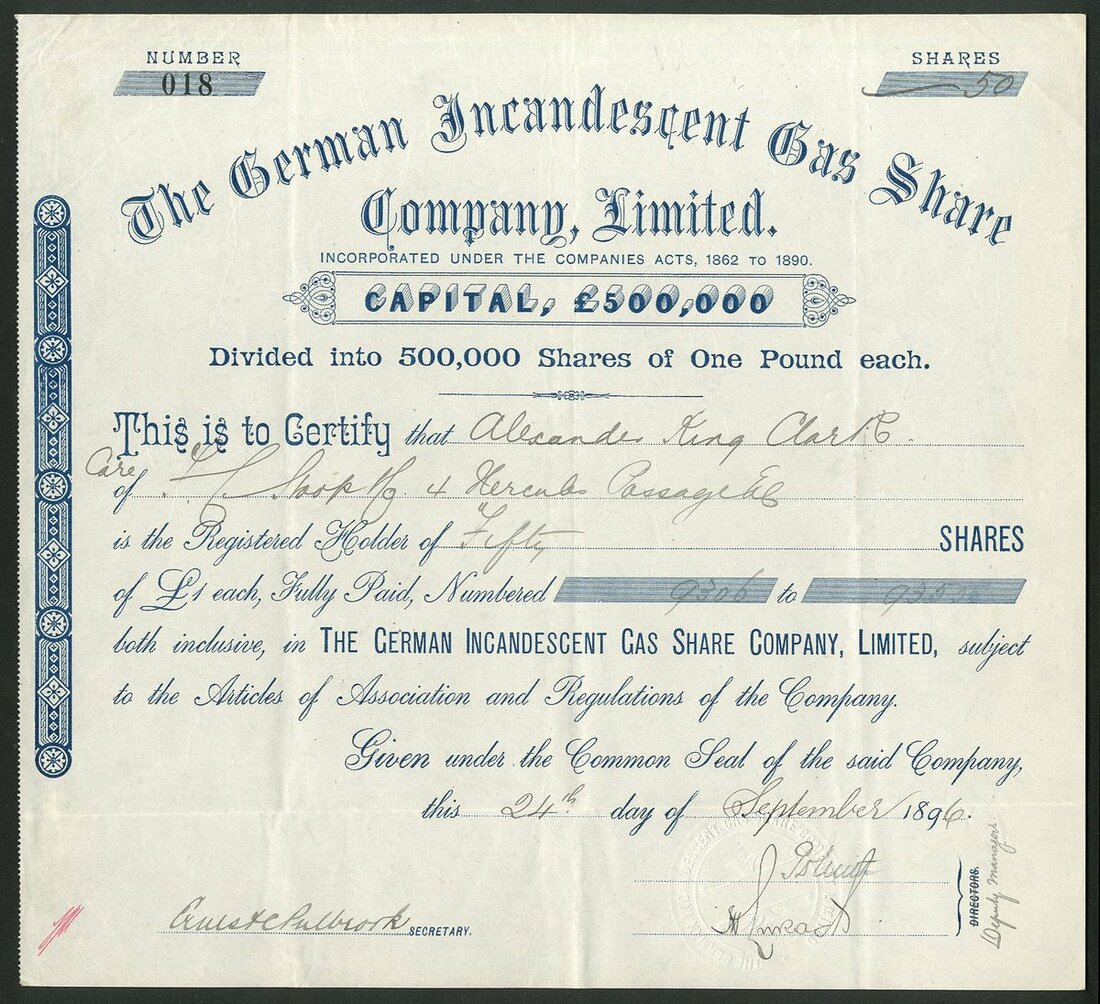 NUMBER
018
SHARES
50
The German Incandescent Gas Share
Company, Limited.
INCORPORATED UNDER THE COMPANIES ACTS, 1862 TO 1890.
CAPITAL, £500,000
Divided into 500,000 Shares of One Pound each.
This is to Certify that Alexander King Clark
Care
of 4 Hercules Passage EC
is the Registered Holder of Fifty SHARES
of £1 each, Fully Paid, Numbered 9306 to 9355
both inclusive, in THE GERMAN INCANDESCENT GAS SHARE COMPANY, LIMITED, subject
to the Articles of Association and Regulations of the Company.
Given under the Common Seal of the said Company,
this 24th day of September 1896.
DIRECTORS.
Deputy Managers
SECRETARY.